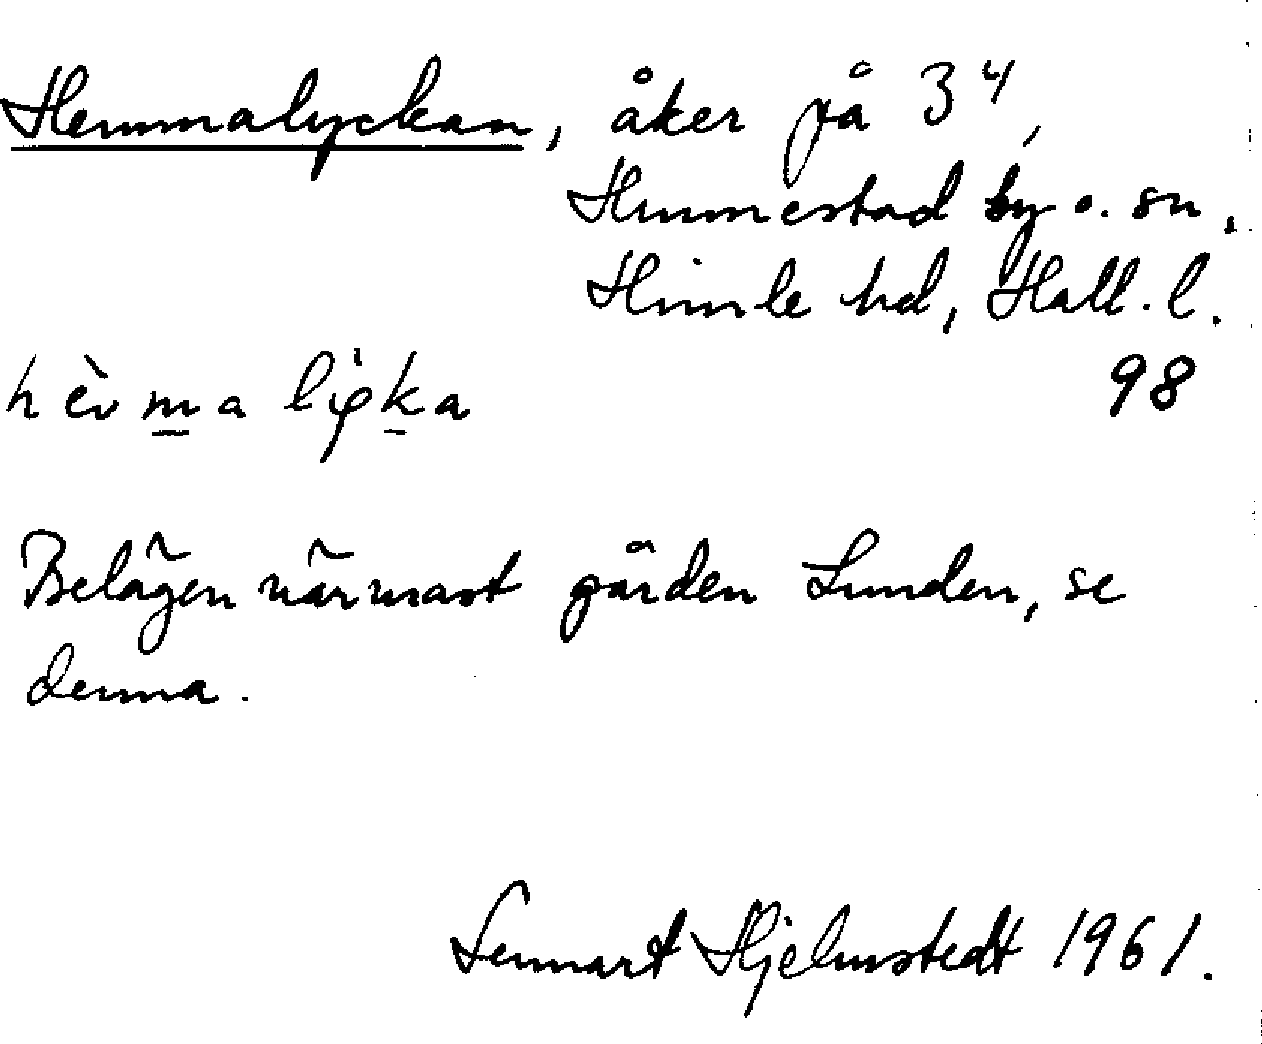 Hemmalyckan, åker på 3⁴,
Hunnestad by o. sn,
Himle hd, Hall. l.
98
Belägen närmast gården Lunden, se
denna.
Lennart Hjelmstedt 1961.